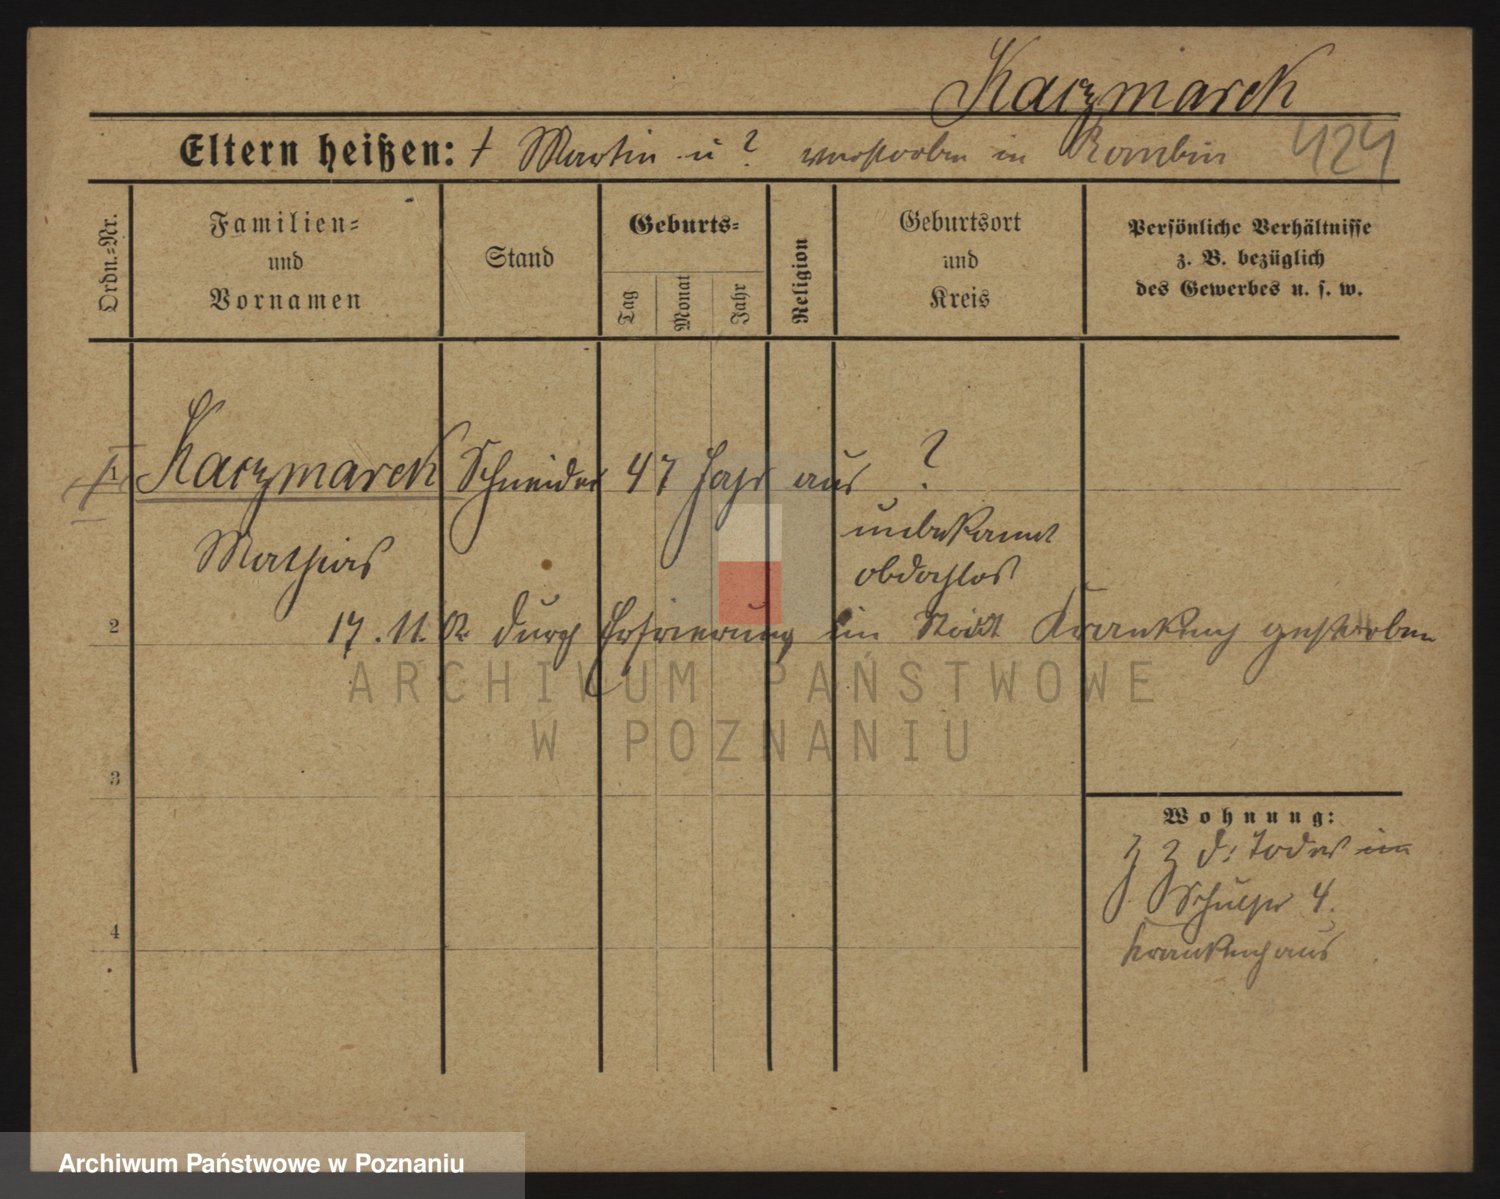 Kaczmarek
Eltern heißen: † Martin u ? verstorben in Rombin 424
Ordn.=Nr.
Familien=
und
Vornamen
Stand
Geburts=
Tag
Monat
Jahr
Religion
Geburtsort
und
Kreis
Persönliche Verhältnisse
z. B. bezüglich
des Gewerbes u. s. w.
1 Kaczmarek Schneider 47 Jahr aus ?
unbekannt
Mathias obdachlos
2 17. 11. 02 durch Erfrierung im Stadt Krankenh gestorben
ARCHIWUM PAŃSTWOWE
W POZNANIU
3
Wohnung:
z Z d: Todes im
Schulstr 4.
4 Krankenhaus
Archiwum Państwowe w Poznaniu